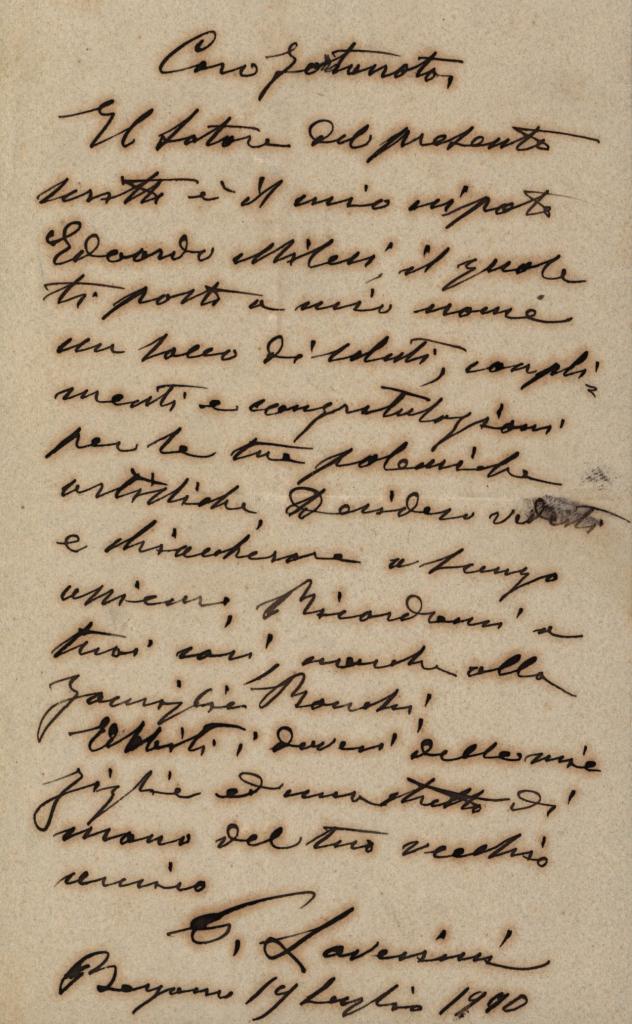 Caro Fortunato,
Il latore del presente
scritto è il mio nipote
Edoardo Milesi, il quale
ti porta a mio nome
un sacco di saluti, compli=
menti e congratulazioni
per le tue polemiche
artistiche. Desidero vederti
e chiacherare a lungo
assieme. Ricordami a
tuoi cari, anche alla
famiglia Bonchi.
Abbiti i doveri delle mie
figlie ed una stretta di
mano del tuo vecchio
amico
Bergamo 19 Luglio